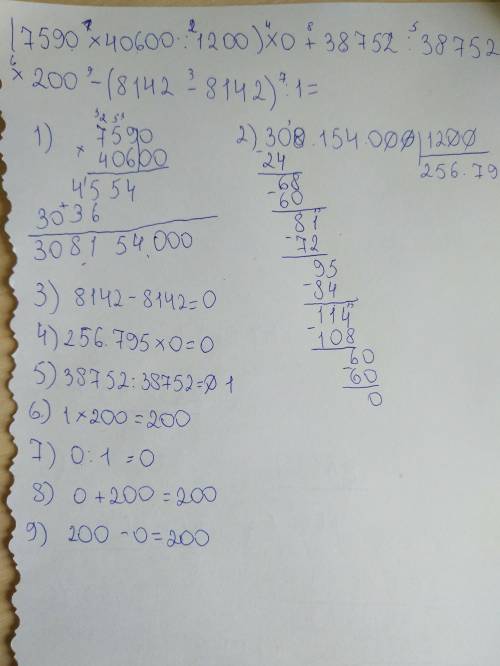 (7590 × 40600 : 1200) × 0 + 38752 : 38752
× 200 - (8142 - 8142) : 1 =
1) 7590
× 40600
4554
+
3036
308154.000
2) 308.154.000 | 1200
-24 256.79
-68
60
81
-72
95
-84
114
-108
60
-60
0
3) 8142 - 8142 = 0
4) 256.795 × 0 = 0
5) 38752 : 38752 = 1
6) 1 × 200 = 200
7) 0 : 1 = 0
8) 0 + 200 = 200
9) 200 - 0 = 200